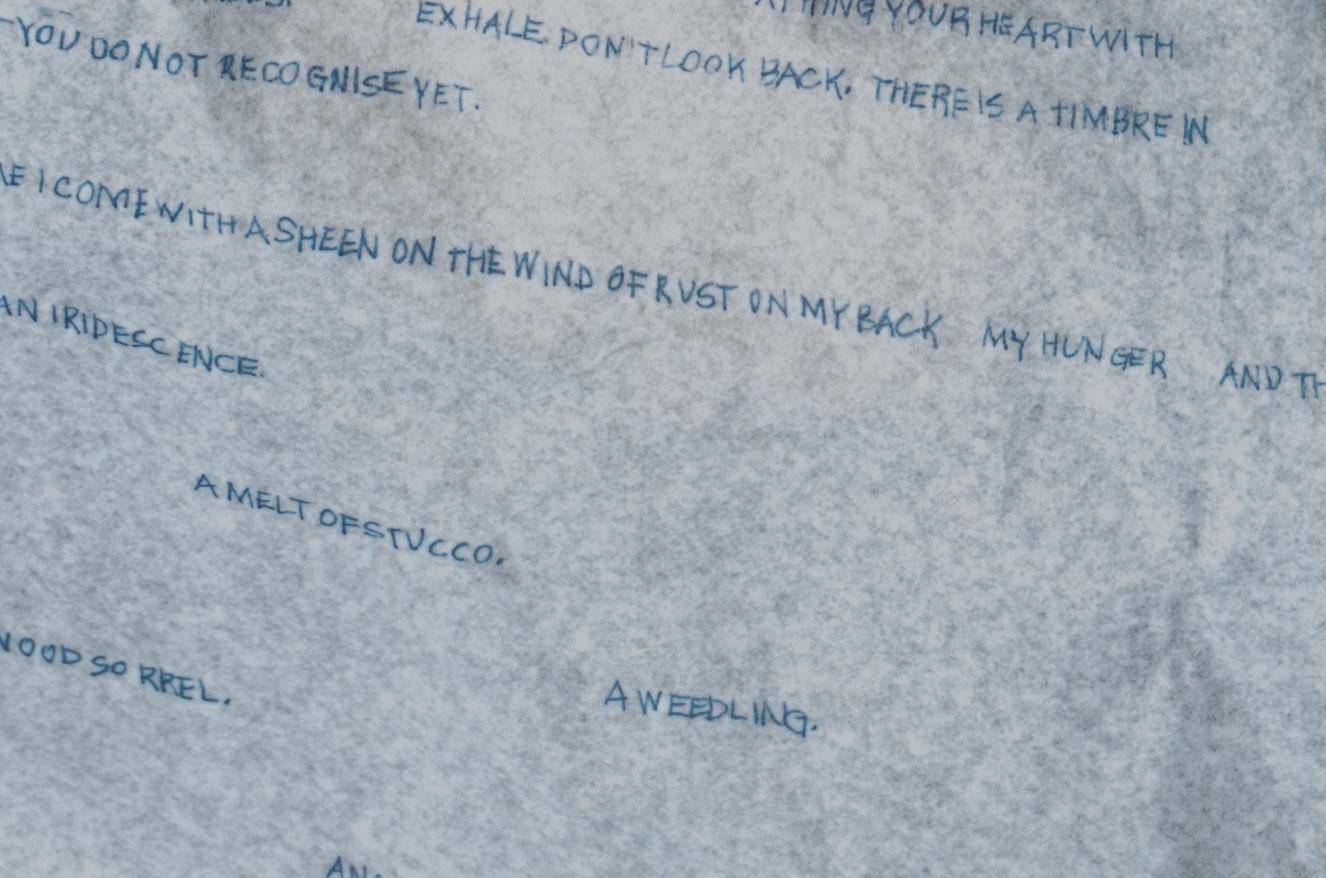 YOUR HEART WITH
EXHALE. DON'T LOOK BACK. THERE IS A TIMBRE IN
YOU DO NOT RECOGNISE YET.
I COME WITH A SHEEN ON THE WIND OF RUST ON MY BACK MY HUNGER AND
AN IRIDESCENCE.
A MELT OF STUCCO.
WOOD SORREL. A WEEDLING.